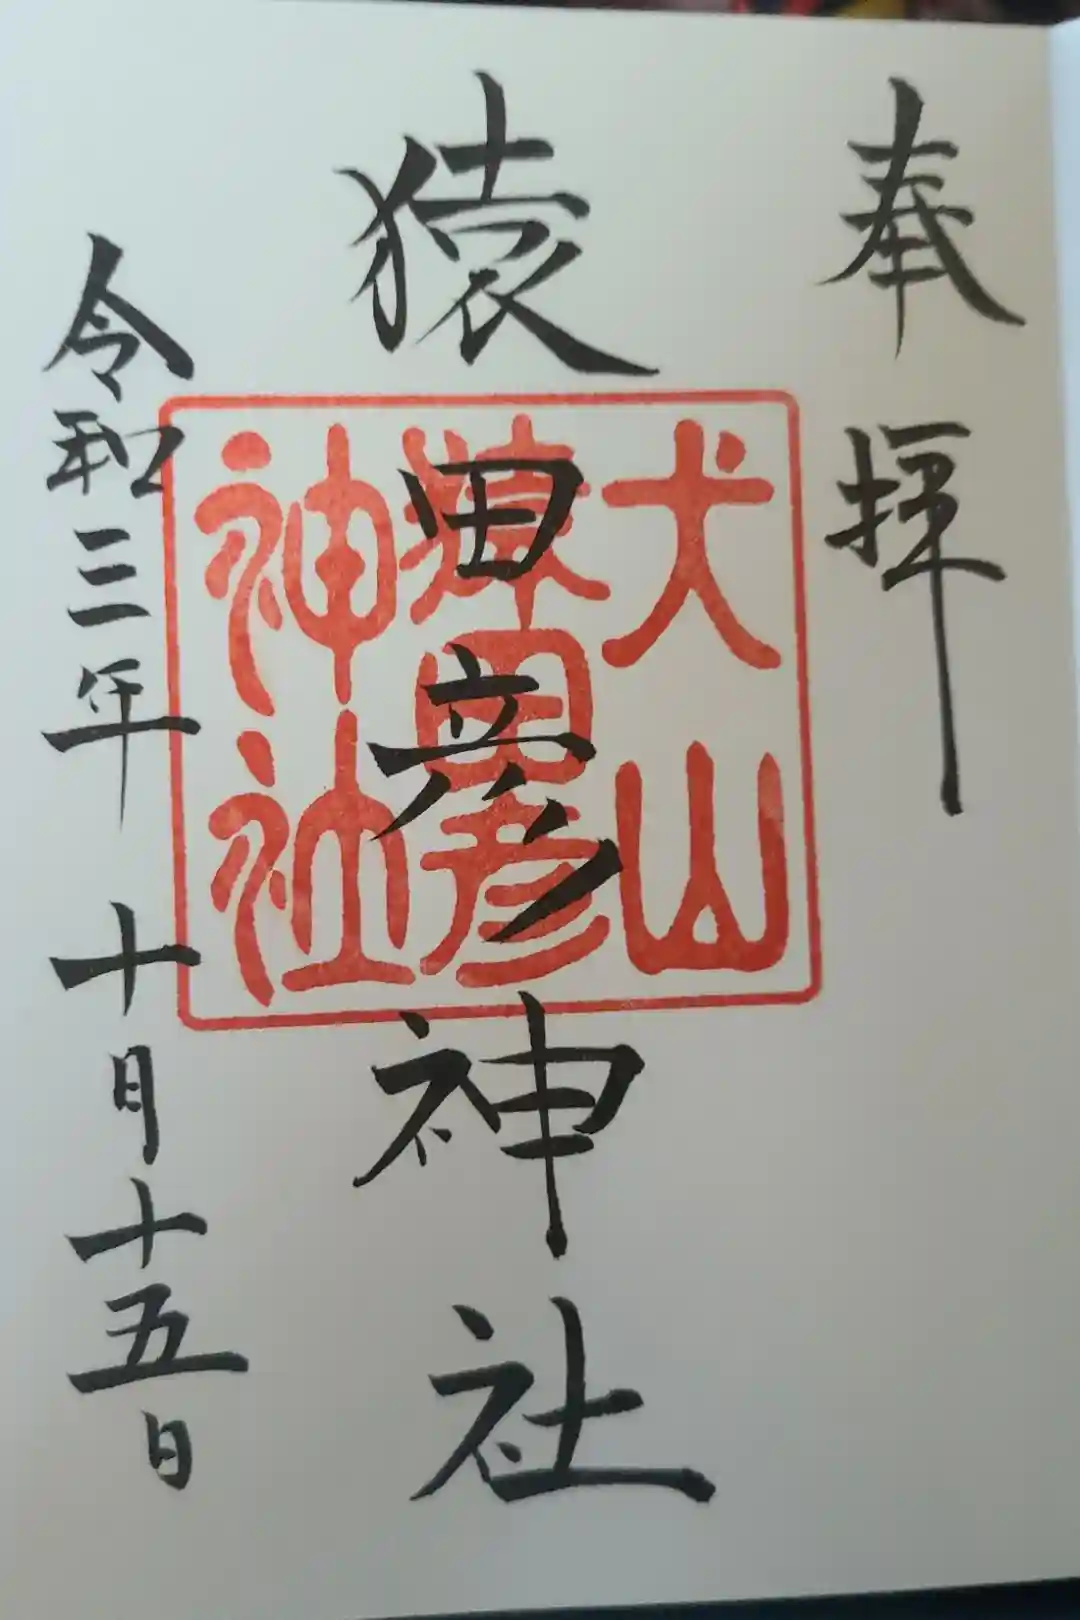 奉拝
猿田彦神社
令和三年十月十五日
犬山
猿田彦
神社